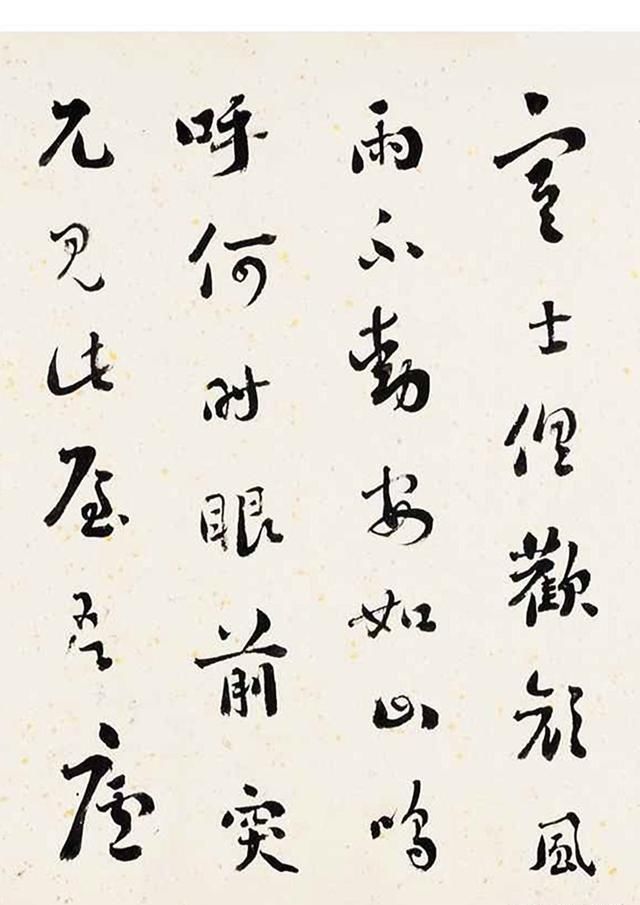 寒士俱歡顏風
雨不動安如山嗚
呼何時眼前突
兀見此屋吾廬